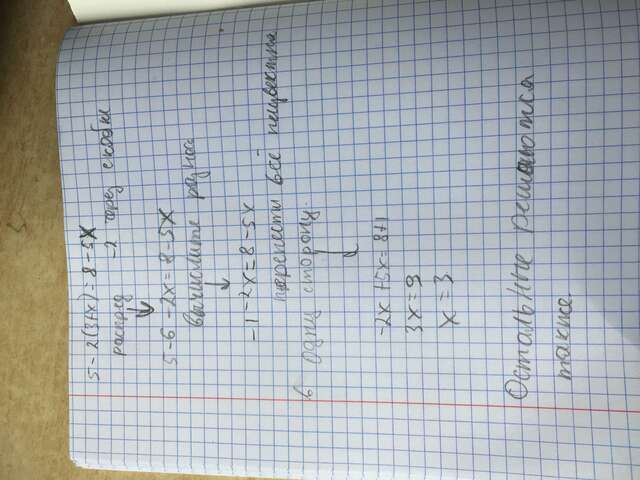 5-2(3+x)=8-5x
распред -2 через скобки
5-6-2x=8-5x
вычислите разнос
-1-2x=8-5x
перенести всё неизвестные
в одну сторону.
-2x+5x=8+1
3x=9
x=3
Остальные решаются
также.